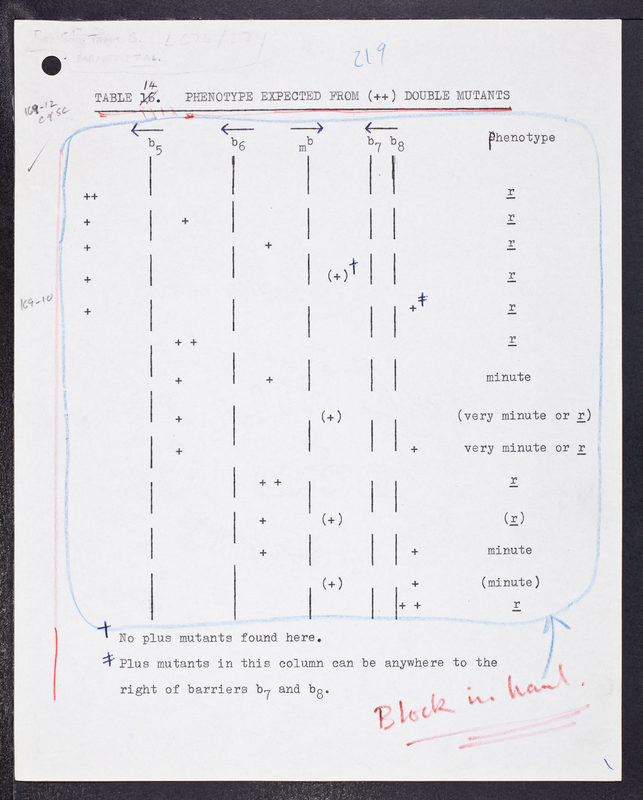 219
14
TABLE 16. PHENOTYPE EXPECTED FROM (++) DOUBLE MUTANTS
169-12
b5 b6 mb b7 b8 Phenotype
++ r
+ + r
+ + r
+ (+)† r
+ +‡ r
+ + r
+ + minute
+ (+) (very minute or r)
+ + very minute or r
+ + r
+ (+) (r)
+ + minute
(+) + (minute)
+ + r
169-10
† No plus mutants found here.
‡ Plus mutants in this column can be anywhere to the
right of barriers b7 and b8.
Block in hand.